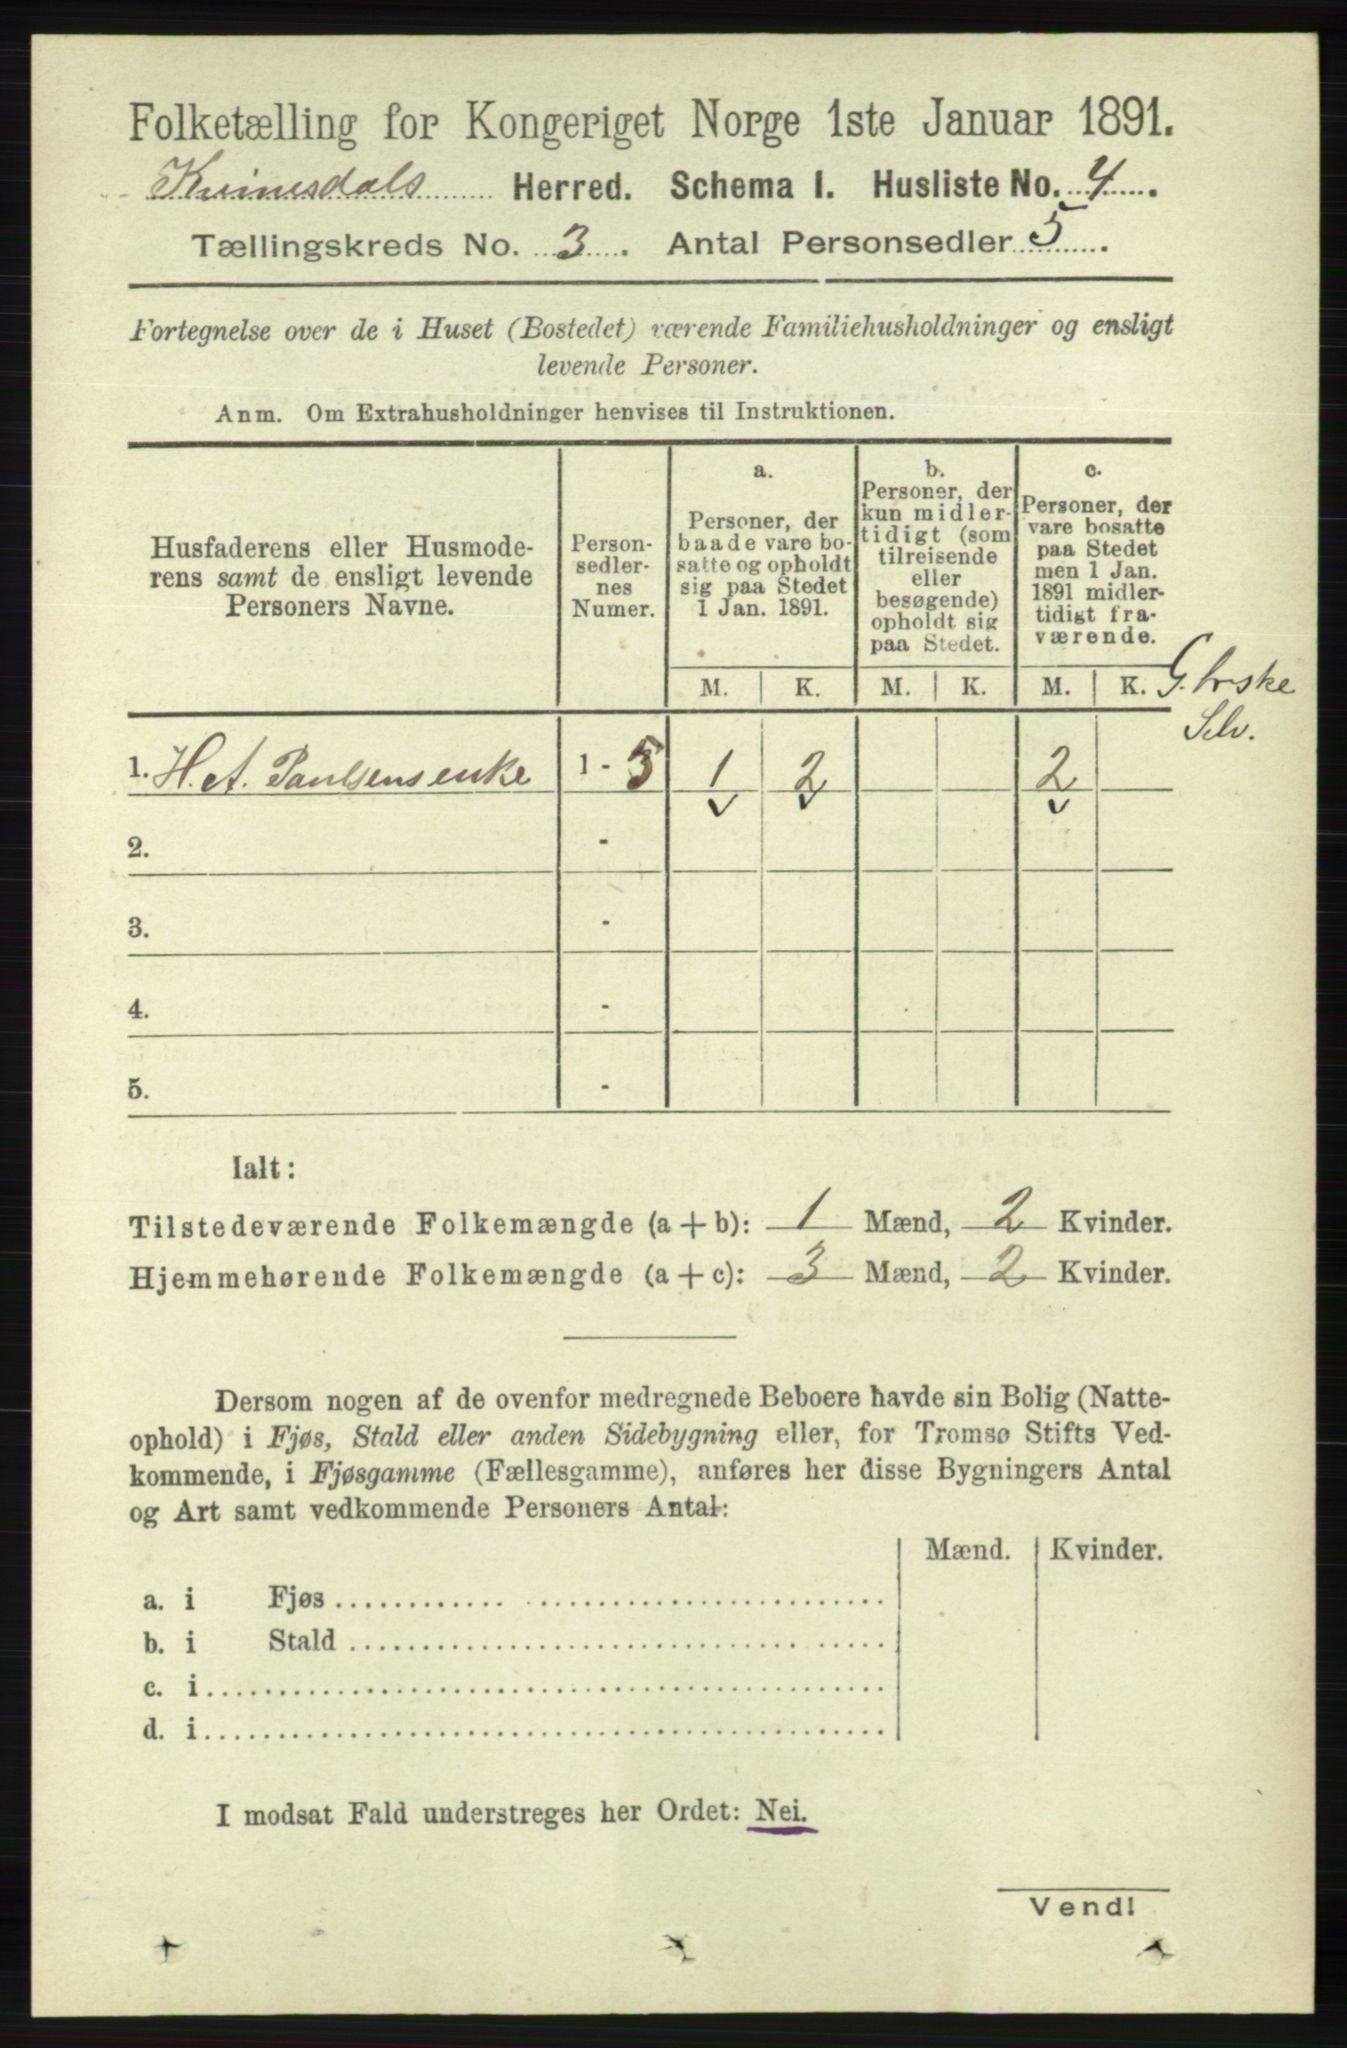 Folketælling for Kongeriget Norge 1ste Januar 1891.
Kvinesdals Herred. Schema I. Husliste No. 4.
Tællingskreds No. 3. Antal Personsedler 5.
Fortegnelse over de i Huset (Bostedet) værende Familiehusholdninger og ensligt
levende Personer.
Anm. Om Extrahusholdninger henvises til Instruktionen.
Husfaderens eller Husmode-
rens samt de ensligt levende
Personers Navne.
Person-
sedler-
nes
Numer.
a.
Personer, der
baade vare bo-
satte og opholdt
sig paa Stedet
1 Jan. 1891.
b.
Personer, der
kun midler-
tidigt (som
tilreisende
eller
besøgende)
opholdt sig
paa Stedet.
c.
Personer, der
vare bosatte
paa Stedet
men 1 Jan.
1891 midler-
tidigt fra-
værende.
M. K. M. K. M. K.
Selv.
1. H. A. Paulsens enke 1 - 5 1 2 2
2. -
3. -
4. -
5. -
Ialt:
Tilstedeværende Folkemængde (a + b): 1 Mænd, 2 Kvinder.
Hjemmehørende Folkemængde (a + c): 3 Mænd, 2 Kvinder.
Dersom nogen af de ovenfor medregnede Beboere havde sin Bolig (Natte-
ophold) i Fjøs, Stald eller anden Sidebygning eller, for Tromsø Stifts Ved-
kommende, i Fjøsgamme (Fællesgamme), anføres her disse Bygningers Antal
og Art samt vedkommende Personers Antal:
Mænd. Kvinder.
a. i Fjøs
b. i Stald
c. i
d. i
I modsat Fald understreges her Ordet: Nei.
Vend!